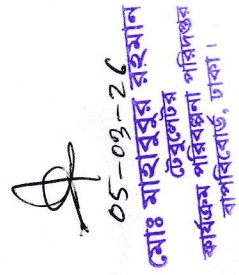 05-03-26
মোঃ মাহাবুবুর রহমান
টেবুলেটর
কার্যক্রম পরিকল্পনা পরিদপ্তর
বাপবিবোর্ড, ঢাকা।